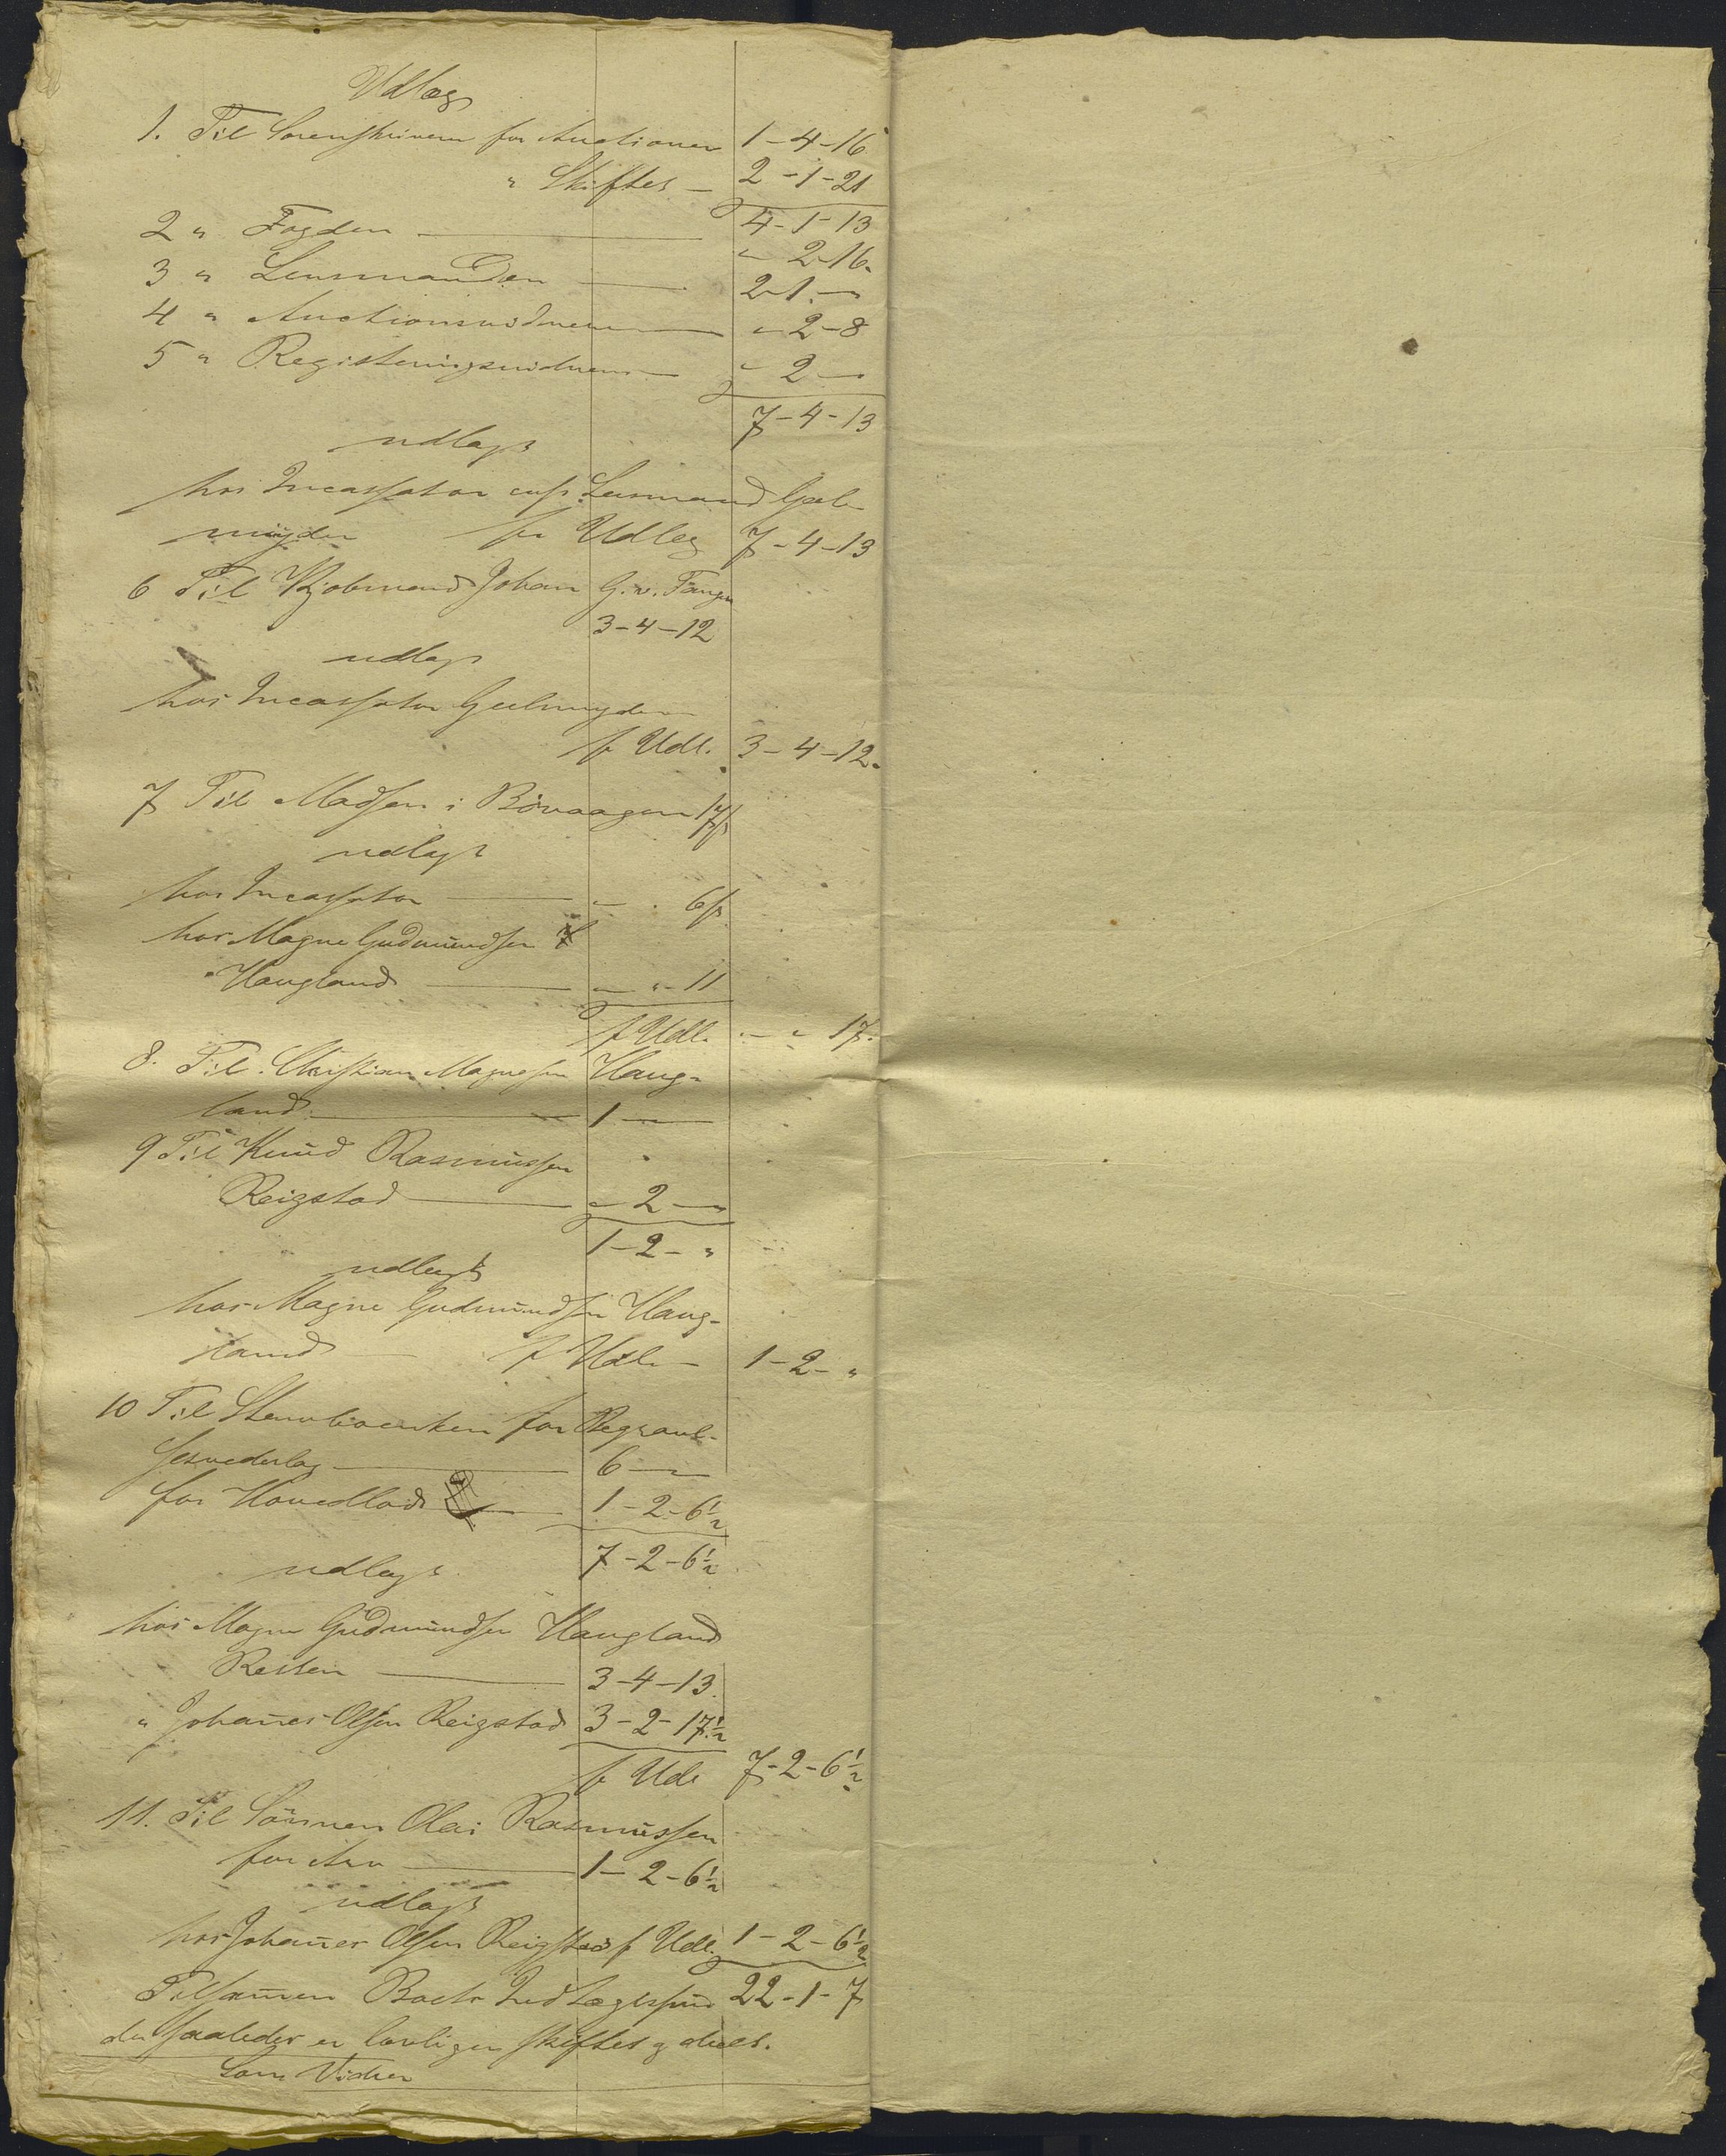 Udlæg
1. Til Sorenskriveren for Auctionen 1-4-16
" Skiftet — 2-1-21
4-1-13
2 " Fogden — " 2-16.
3 " Lensmanden — 2-1-"
4 " Auctionsvidnerne — " 2-8
5 " Registeringsvidnerne — " 2-"
7-4-13
udlagt
hos Incassator Lensmand Geel-
muyden pr Udlæg 7-4-13
6 Til Kjøbmand Johan G. v. Tangen
3-4-12
udlagt
hos Incassator Geelmuyden
pr Udl. 3-4-12.
7 Til Madsen i Bövaagen 17 s
udlagt
hos Incassator — " " 6 s
hos Magne Gudmundsen
Haugland — " " 11
pr Udl. " " 17.
8. Til Christian Magnesen Haug-
land — 1 —
9 Til Knud Rasmussen
Reigstad — " 2 —
1-2-"
udlagt
hos Magne Gudmundsen Haug-
land — pr Udl. — 1-2-"
10 Til Stervboenken for Begravel-
sesvederlag — 6 —
for Hovedlod — 1-2-6½
7-2-6½
udlagt
hos Magne Gudmundsen Haugland
Resten — 3-4-13.
" Johañes Olsen Reigstad 3-2-17½
pr Udl 7-2-6½
11. Til Sönnen Olai Rasmussen
for Arv — 1-2-6½
udlagt
hos Johañes Olsen Reigstad pr Udl. 1-2-6½
Tilsam̄en Boets Indtægtssum 22-1-7
der saaledes er lovligen skiftet og deelt.
Som Vidner